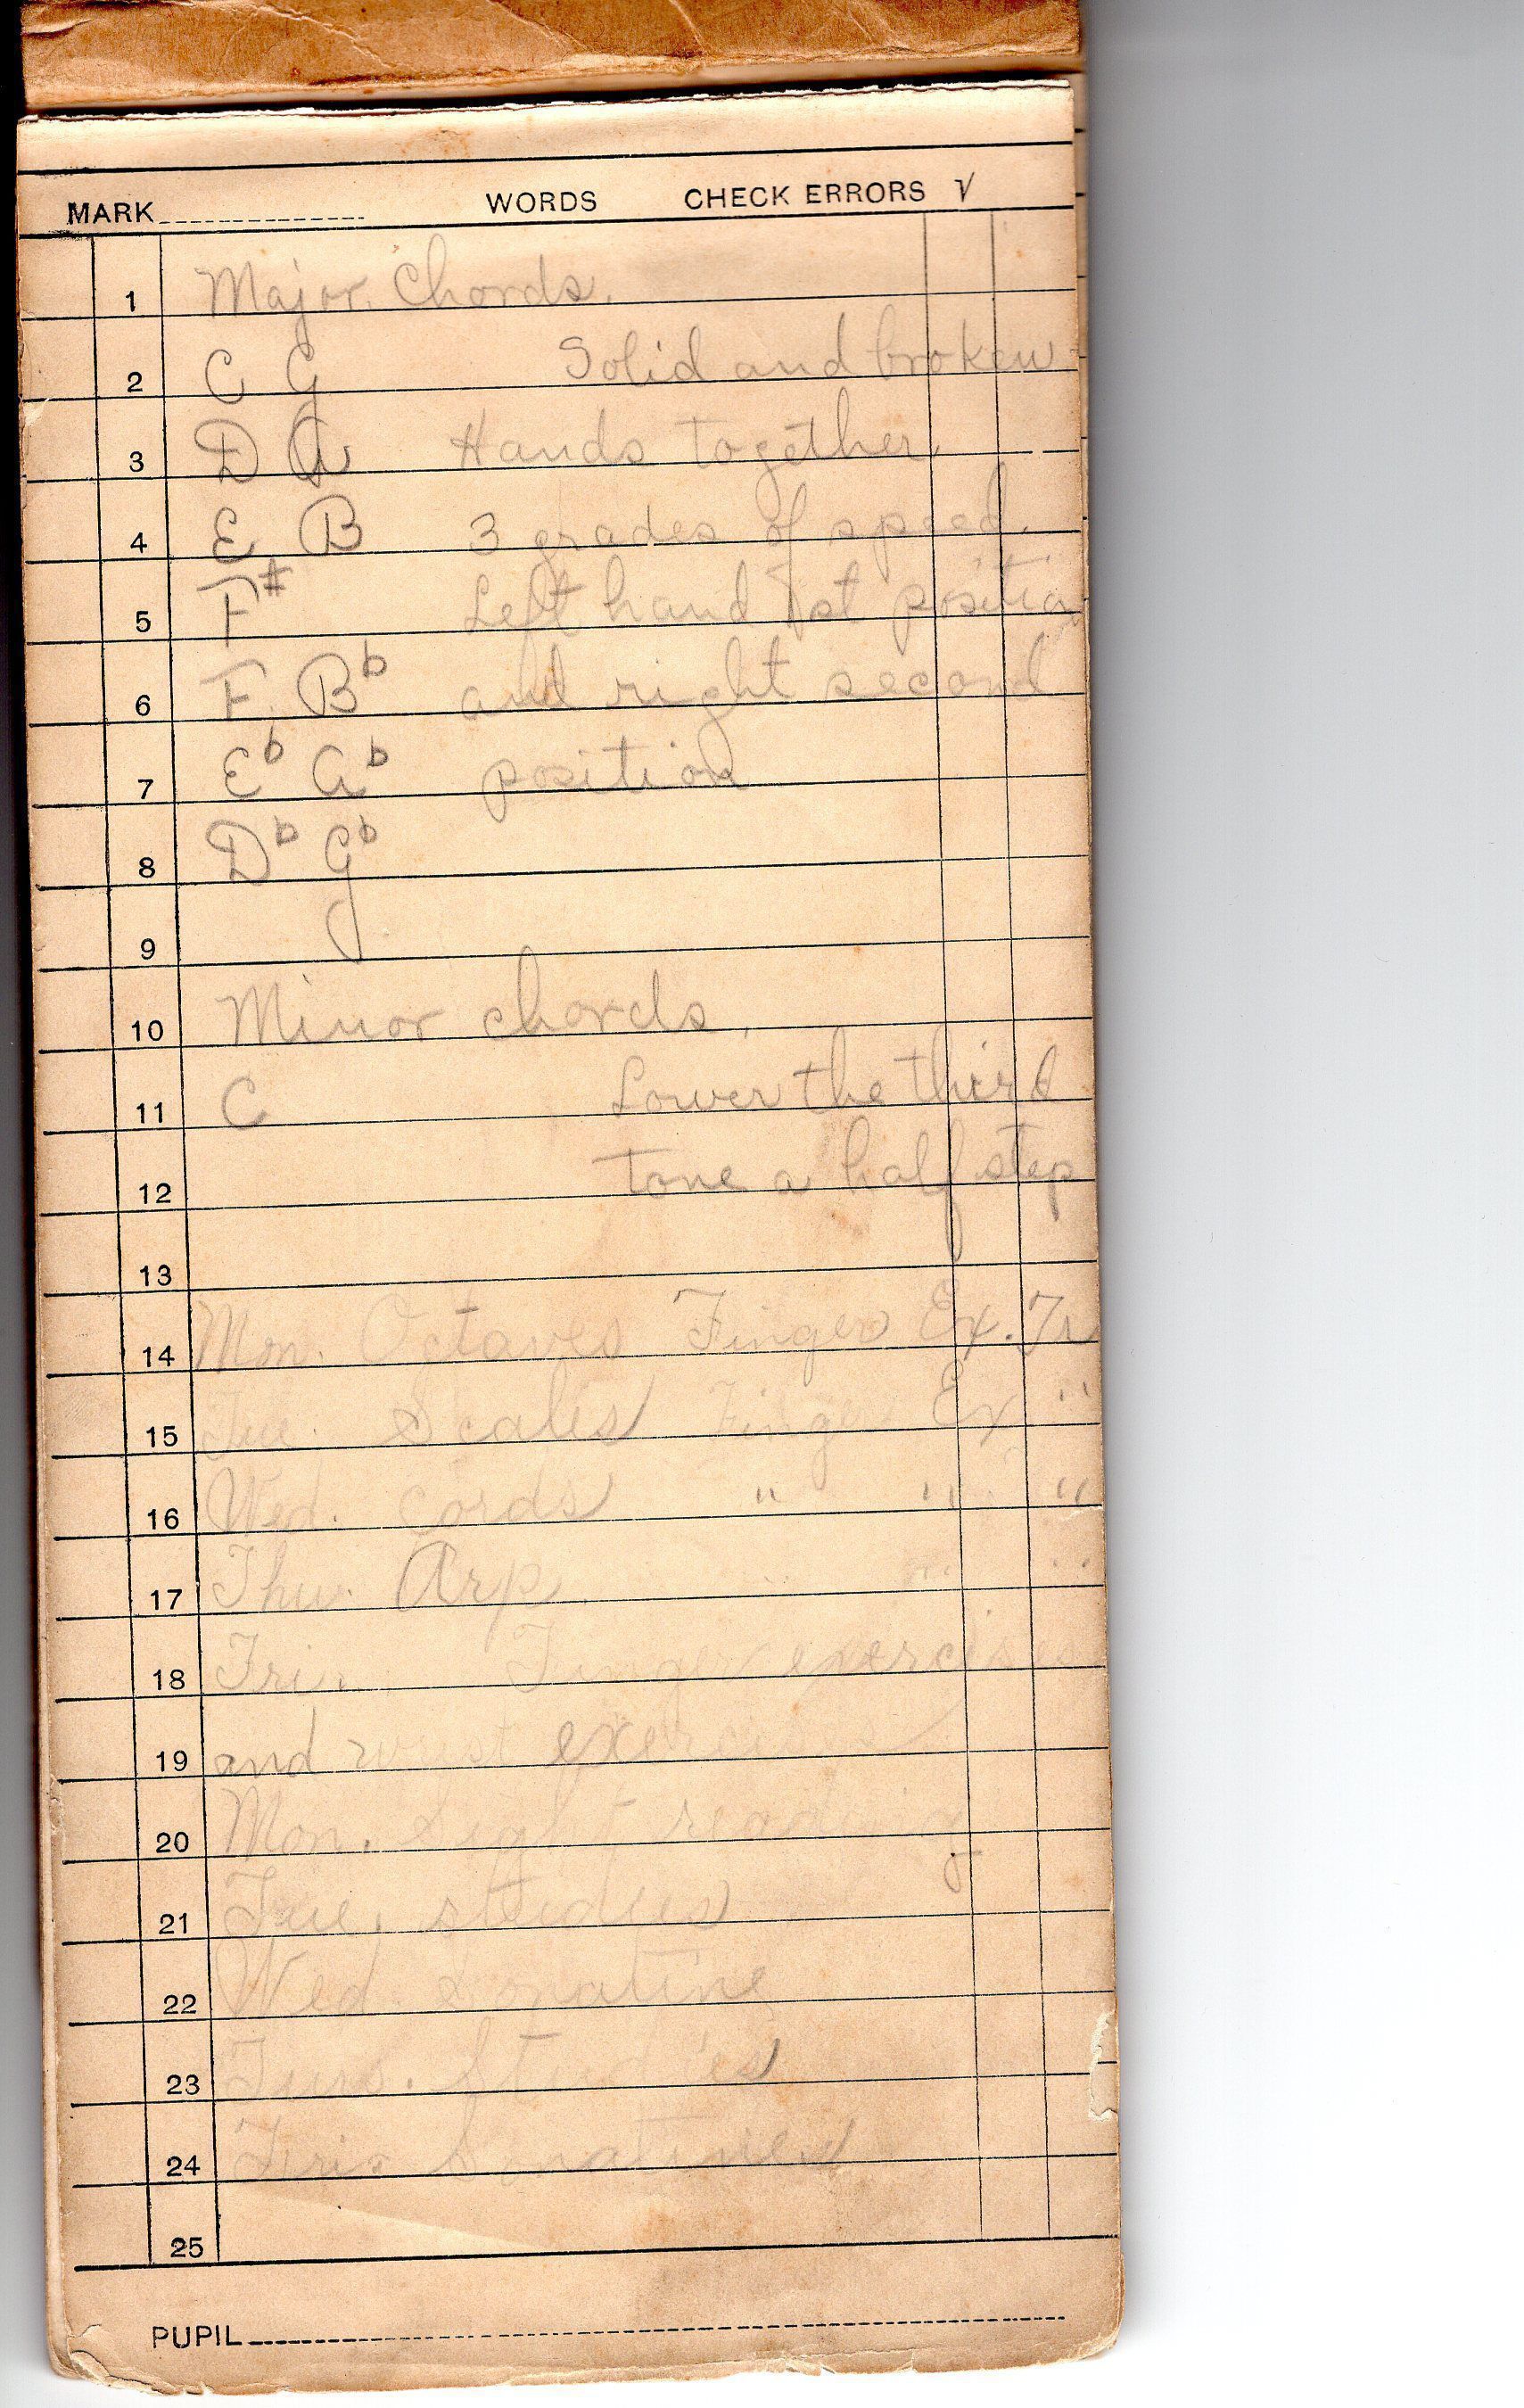 MARK WORDS CHECK ERRORS √
1 Major Chords.
2 C G Solid and broken
3 D A Hands together.
4 E B 3 grades of speed.
5 F# Left hand 1st position
6 F. B♭ and right second
7 E♭ A♭ position
8 D♭ G♭
9
10 Minor chords.
11 C Lower the third
12 tone a half step
13
14 Mon. Octaves Finger Ex. Tr
15 Tue. Scales Finger Ex "
16 Wed. cords " " "
17 Thu. Arp. " " "
18 Fri. Finger exercises
19 and wrist exercises
20 Mon. Sight reading
21 Tue. studies
22 Wed. Sonatine
23 Turs. Studies
24 Fri. Sonatines
25
PUPIL